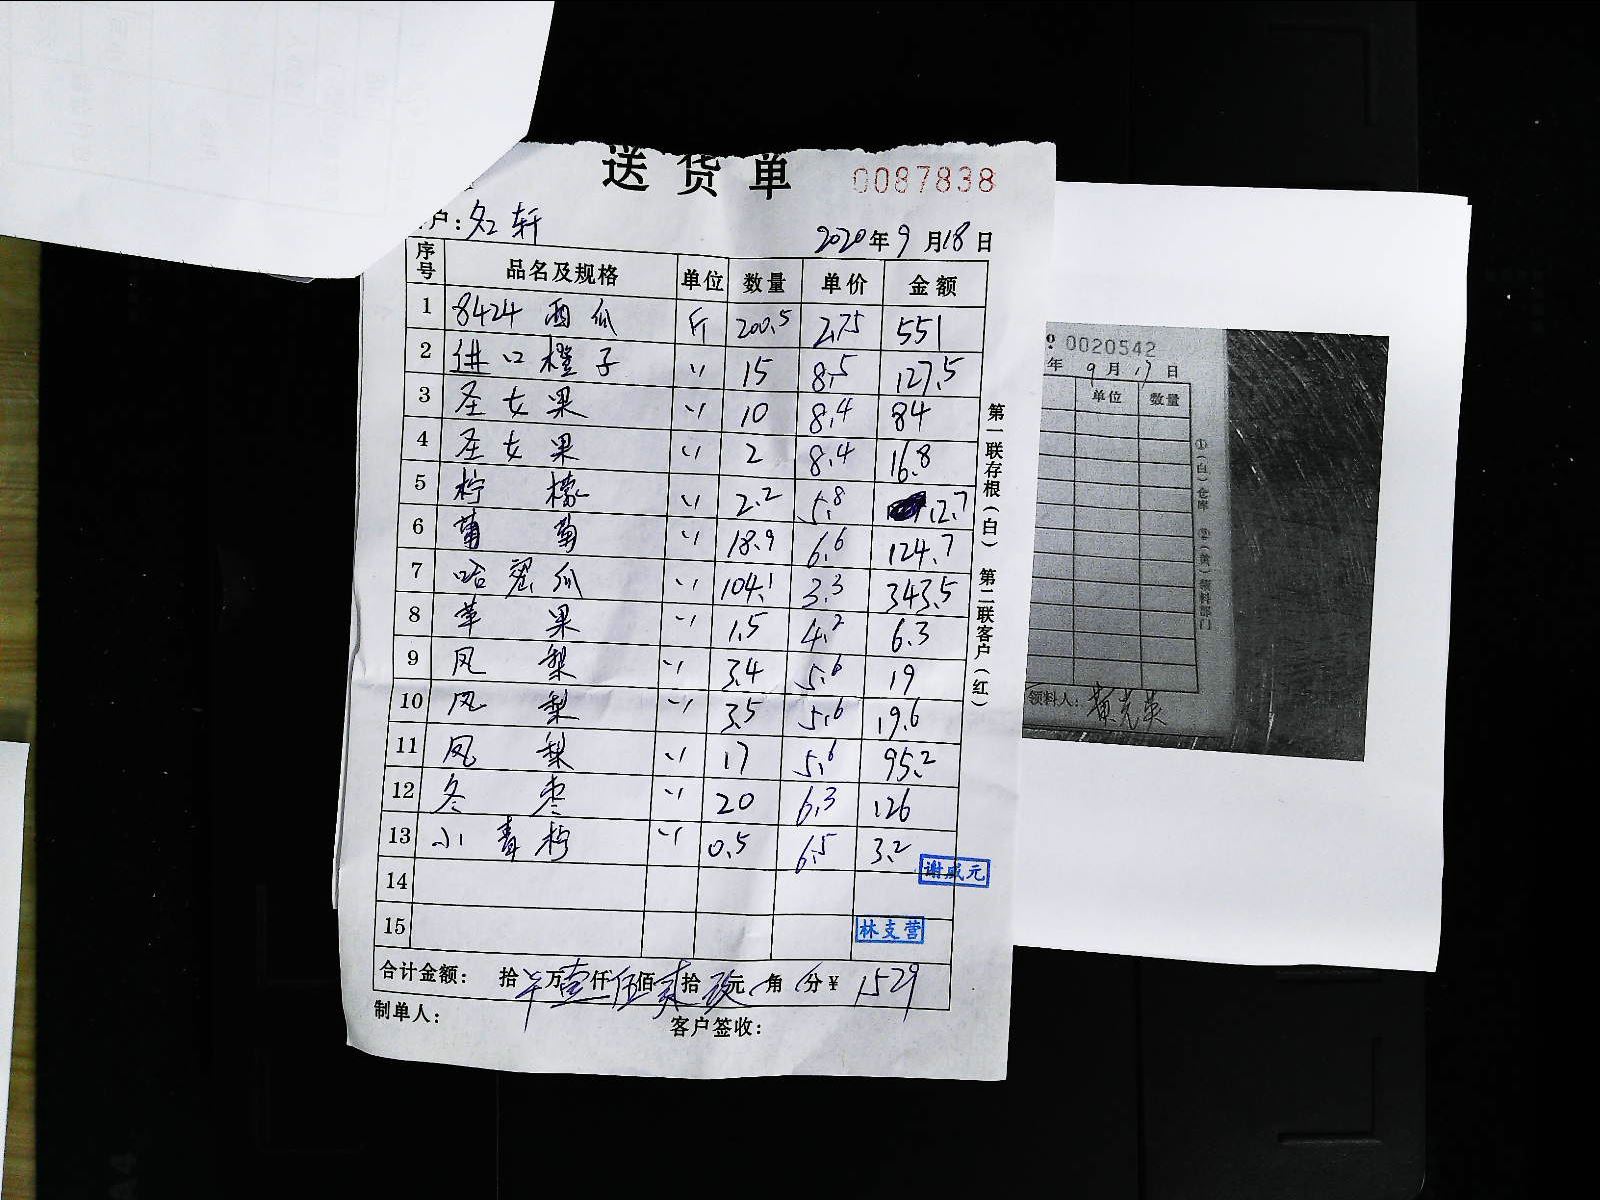 送货单 0087838
户: 名轩 2020年9月18日
序号 品名及规格 单位 数量 单价 金额
1 8424西瓜 斤 200.5 2.75 551
2 进口橙子 〃 15 8.5 127.5
3 圣女果 〃 10 8.4 84
4 圣女果 〃 2 8.4 16.8
5 柠檬 〃 2.2 5.8 12.7
6 葡萄 〃 18.9 6.6 124.7
7 哈密瓜 〃 104.1 3.3 343.5
8 苹果 〃 1.5 4.2 6.3
9 凤梨 〃 3.4 5.6 19
10 凤梨 〃 3.5 5.6 19.6
11 凤梨 〃 17 5.6 95.2
12 冬枣 〃 20 6.3 126
13 小青柠 〃 0.5 6.5 3.2
谢成元
14
15 林支营
合计金额: 拾 万壹仟伍佰贰拾玖元 角 分¥ 1529
制单人: 客户签收:
第一联存根(白) 第二联客户(红)
0020542
年9月17日
单位 数量
①(白)仓库 ②(黄)领料部门
领料人: